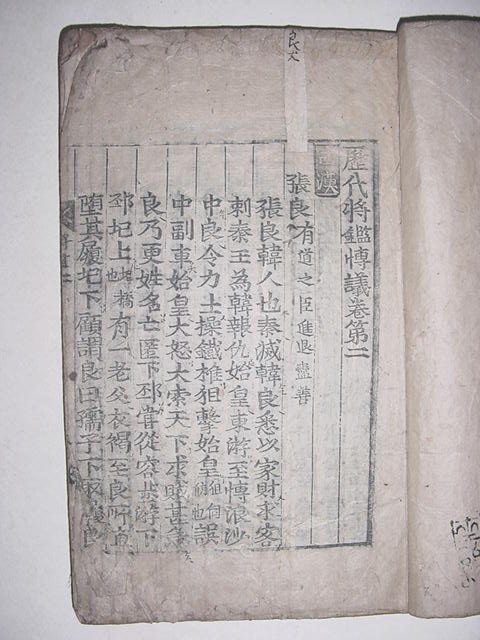 歷代將鑑博議卷第二
漢
張良 有道之臣進退盡善
張良韓人也秦滅韓良悉以家財求客
刺秦王為韓報仇始皇東游至博浪沙
中良令力士操鐵椎狙擊始皇 狙伺也 誤
中副車始皇大怒大索天下求賊甚急
良乃更姓名亡匿下邳嘗從容步游下
邳圯上 圯橋也 有一老父衣褐至良所直
墮其履圯下顧謂良曰孺子下取履良
良